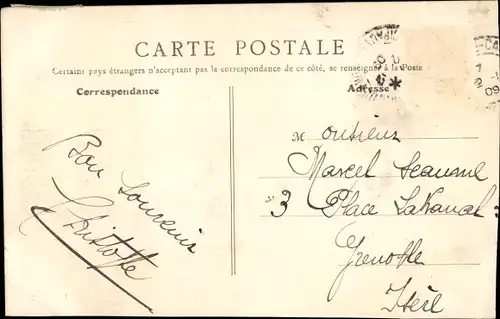 CARTE POSTALE
Certains pays étrangers n'acceptant pas la correspondance de ce côté, se renseigner à la Poste
Correspondance
Adresse
Bon Souvenir
Monsieur
Marcel
3 Place Lakanal
Grenoble
Isère
09